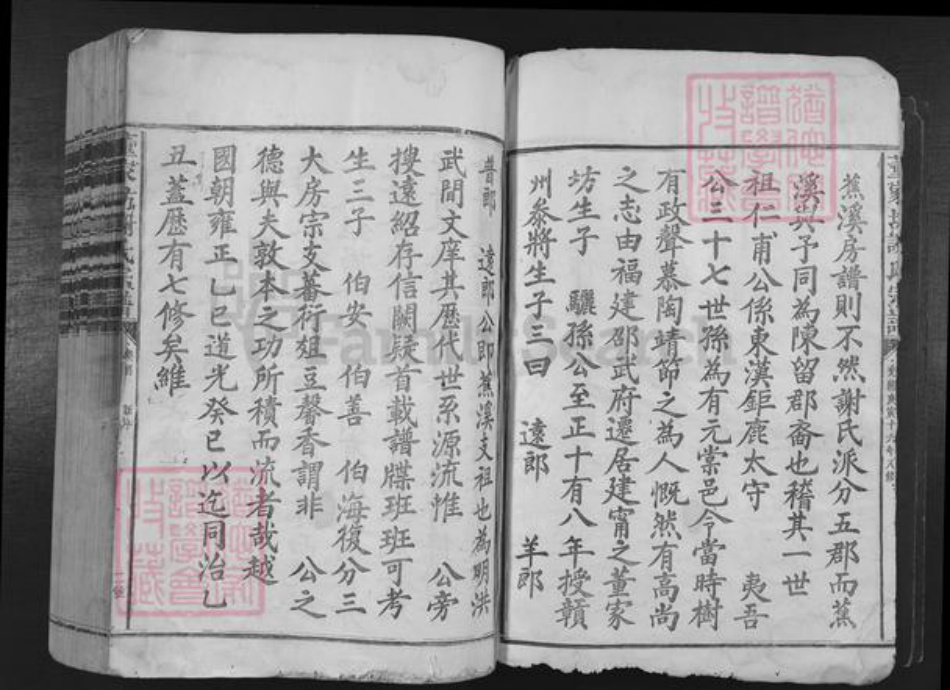 蕉溪房譜則不然謝氏派分五郡而蕉
溪與予同為陳留郡裔也稽其一世
祖仁甫公係東漢鉅鹿太守 夷吾
公三十七世孫為有元棠邑令當時樹
有政聲慕陶靖節之為人慨然有高尚
之志由福建邵武府遷居建甯之董家
坊生子 驪孫公至正十有八年授贛
州叅將生子三曰 遠郎 羊郎
普郎 遠郎公即蕉溪支祖也為明洪
武間文庠其歷代世系源流惟 公旁
搜遠紹存信闕疑首載譜牒班班可考
生三子 伯安 伯善 伯海復分三
大房宗支蕃衍俎豆馨香謂非 公之
德與夫敦本之功所積而流者哉越
國朝雍正乙巳道光癸巳以迄同治乙
丑蓋歷有七修矣維
FamilySearch